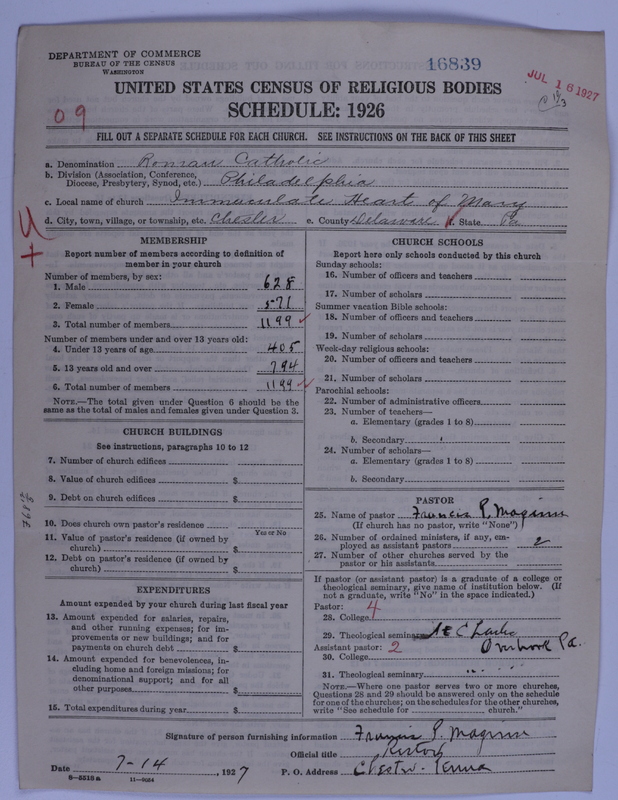 DEPARTMENT OF COMMERCE
BUREAU OF THE CENSUS
WASHINGTON
16839
JUL 16 1927
UNITED STATES CENSUS OF RELIGIOUS BODIES
SCHEDULE: 1926
09
FILL OUT A SEPARATE SCHEDULE FOR EACH CHURCH. SEE INSTRUCTIONS ON THE BACK OF THIS SHEET
a. Denomination Roman Catholic
b. Division (Association, Conference, Diocese, Presbytery, Synod, etc.) Philadelphia
c. Local name of church Immaculate Heart of Mary
d. City, town, village, or township, etc. Chester e. County Delaware f. State Pa
MEMBERSHIP
Report number of members according to definition of
member in your church
Number of members, by sex:
1. Male 628
2. Female 571
3. Total number of members 1199
Number of members under and over 13 years old:
4. Under 13 years of age 405
5. 13 years old and over 794
6. Total number of members 1199
NOTE.—The total given under Question 6 should be
same as the total of males and females given under Question 3.
CHURCH BUILDINGS
See instructions, paragraphs 10 to 12
7. Number of church edifices
8. Value of church edifices $
9. Debt on church edifices $
10. Does church own pastor's residence
Yes or No
11. Value of pastor's residence (if owned by
church) $
12. Debt on pastor's residence (if owned by
church) $
EXPENDITURES
Amount expended by your church during last fiscal year
13. Amount expended for salaries, repairs,
and other running expenses; for im-
provements or new buildings; and for
payments on church debt $
14. Amount expended for benevolences, in-
cluding home and foreign missions; for
denominational support; and for all
other purposes $
15. Total expenditures during year $
CHURCH SCHOOLS
Report here only schools conducted by this church
Sunday schools:
16. Number of officers and teachers
17. Number of scholars
Summer vacation Bible schools:
18. Number of officers and teachers
19. Number of scholars
Week-day religious schools:
20. Number of officers and teachers
21. Number of scholars
Parochial schools:
22. Number of administrative officers
23. Number of teachers—
a. Elementary (grades 1 to 8)
b. Secondary
24. Number of scholars—
a. Elementary (grades 1 to 8)
b. Secondary
PASTOR
25. Name of pastor Francis P. Maginn
(If church has no pastor, write "None")
26. Number of ordained ministers, if any, em-
ployed as assistant pastors 2
27. Number of other churches served by the
pastor or his assistants
If pastor (or assistant pastor) is a graduate of a college or
theological seminary, give name of institution below. (If
not a graduate, write "No" in the space indicated.)
Pastor: 4
28. College
29. Theological seminary
Assistant pastor: 2 Overbrook Pa.
30. College
31. Theological seminary
NOTE.—Where one pastor serves two or more churches,
Questions 28 and 29 should be answered only on the schedule
for one of the churches; on the schedules for the other churches,
write "See schedule for church."
Signature of person furnishing information Francis P. Maginn
Official title Rector
Date 7-14, 1927 P. O. Address Chester. Penna
8—5518a 11—9024